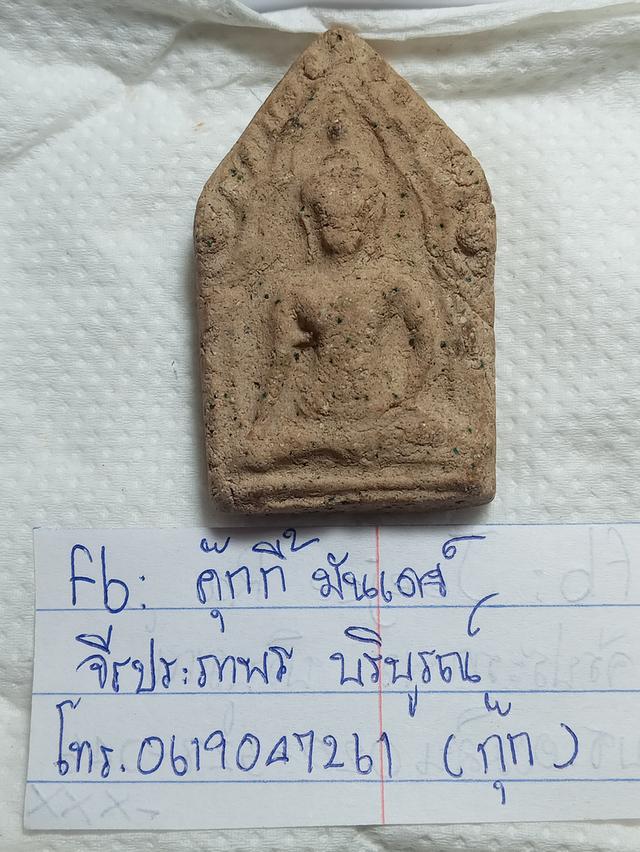 Fb: คุ๊กกี้ มันเดย์
จีรประภาพร บริบูรณ์
โทร. 0619047261 (กุ๊ก)